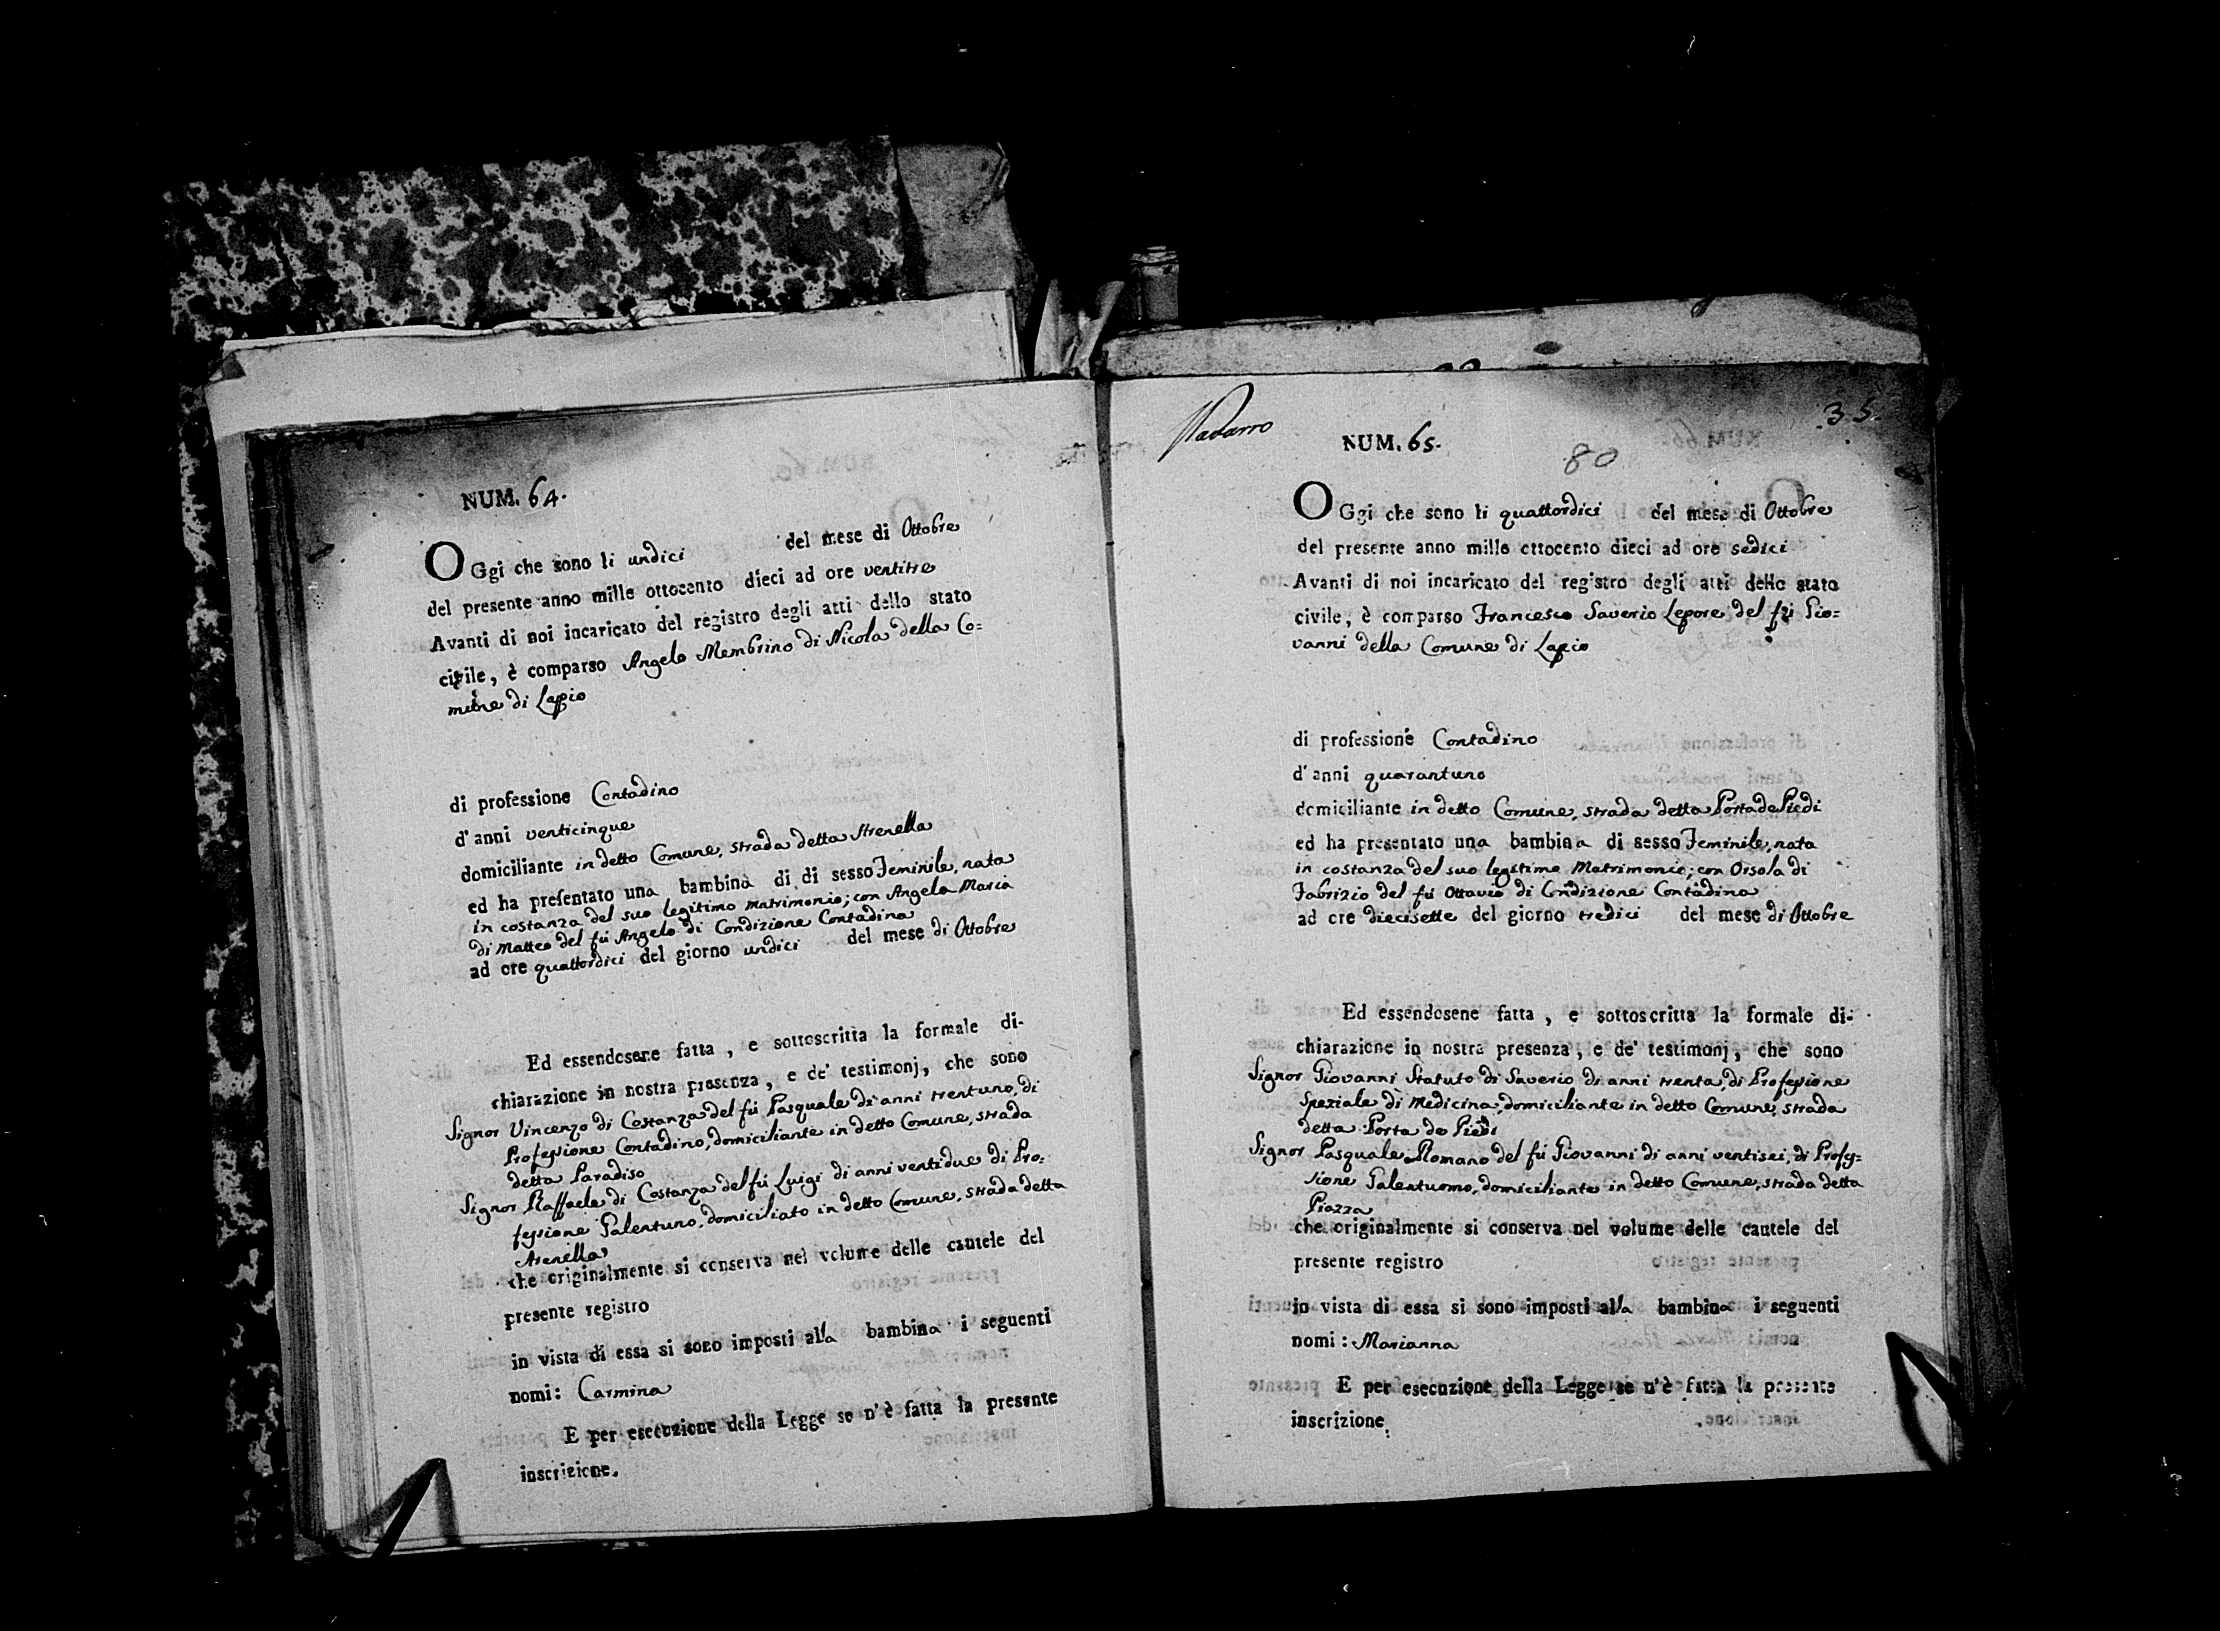 NUM. 64.
OGgi che sono li undici del mese di Ottobre
del presente anno mille ottocento dieci ad ore ventitre
Avanti di noi incaricato del registro degli atti dello stato
civile, è comparso Angelo Membrino di Nicola della Co=
mune di Lapio
di professione Contadino
d'anni venticinque
domiciliante in detto Comune, strada detta Arenella
ed ha presentato una bambina di di sesso Feminile, nata
in costanza del suo legitimo matrimonio; con Angela Maria
di Matteo del fù Angelo di Condizione Contadina
ad ore quattordici del giorno undici del mese di Ottobre
Ed essendosene fatta, e sottoscritta la formale di-
chiarazione in nostra presenza, e de' testimonj, che sono
Signor Vincenzo di Costanza del fù Pasquale di anni trentuno, di
Professione Contadino, domiciliante in detto Comune, strada
detta Paradiso
Signor Raffaele di Costanza del fù Luigi di anni ventidue di Pro=
fessione Galentuno, domiciliato in detto Comune, strada detta
Arenella
che originalmente si conserva nel volume delle cautele del
presente registro
in vista di essa si sono imposti alla bambina i seguenti
nomi: Carmina
E per esecuzione della Legge se n'è fatta la presente
inscrizione.
Nadarro
35.
NUM. 65.
80
OGgi che sono li quattordici del mese di Ottobre
del presente anno mille ottocento dieci ad ore sedici
Avanti di noi incaricato del registro degli atti dello stato
civile, è comparso Francesco Saverio Lepore del fù Gio=
vanni della Comune di Lapio
di professione Contadino
d'anni quarantuno
domiciliante in detto Comune, strada detta Porta de Piedi
ed ha presentato una bambina di sesso Feminile, nata
in costanza del suo legitimo Matrimonio; con Orsola di
Fabrizio del fù Ottavio di Condizione Contadina
ad ore diecisette del giorno tredici del mese di Ottobre
Ed essendosene fatta, e sottoscritta la formale di-
chiarazione in nostra presenza, e de' testimonj, che sono
Signor Giovanni Statuto di Saverio di anni trenta, di Professione
Speziale di Medicina, domiciliante in detto Comune, strada
detta Porta de Piedi
Signor Pasquale Romano del fù Giovanni di anni ventisei, di Profes=
sione Galentuomo, domiciliante in detto Comune, strada detta
Piazza
che originalmente si conserva nel volume delle cautele del
presente registro
in vista di essa si sono imposti alla bambina i seguenti
nomi: Marianna
E per esecuzione della Legge se n'è fatta la presente
inscrizione.